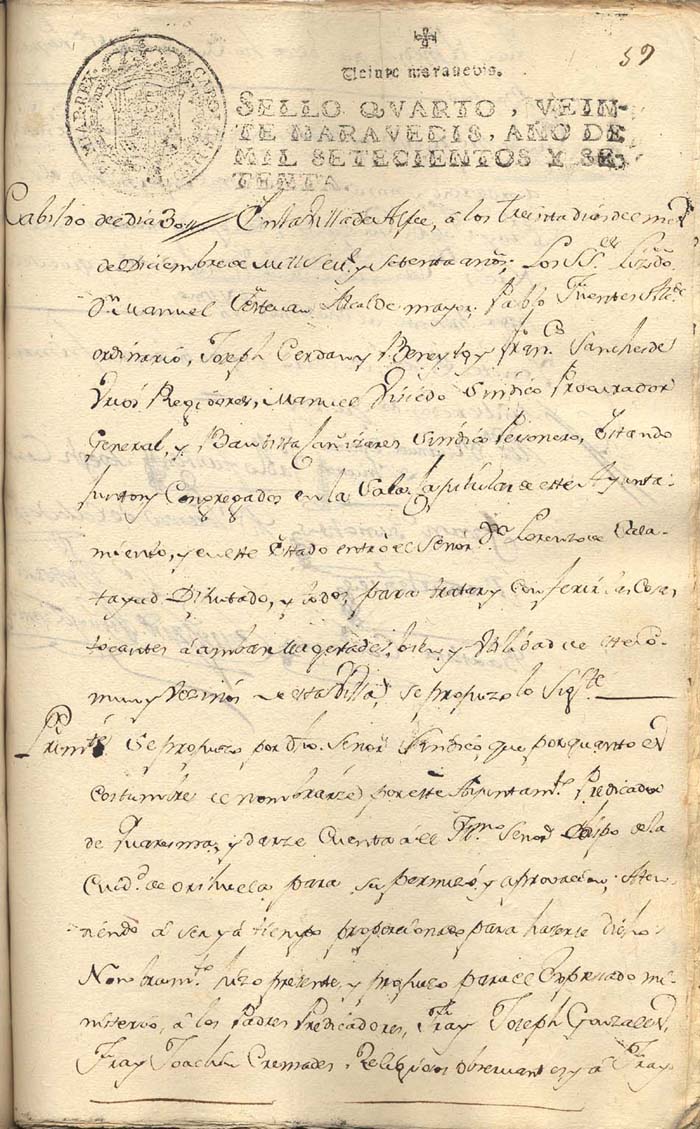 59
Veinte maravedis.
SELLO QVARTO, VEIN-
TE MARAVEDIS, AÑO DE
MIL SETECIENTOS Y SE-
TENTA.
CAROLUS HISPANIAR. REX
Cabildo de el dia 30 // En la Villa de Aspe, a los treinta dias de mes
de Diciembre de Mill Setᵗ. y setenta años; Los SSʳᵉˢ. Lizᵈᵒ.
Dⁿ. Manuel Estevan Alcalde mayor, Pablo Fuentes Alcᵈᵉ.
ordinario, Joseph Cerdan y Beneyto y Franᶜᵒ. Sanches de
Regidores, Manuel Sindico Procurador
General, y Bautista Cañizares Sindico Personero, Estando
Juntos y Congregados en la Sala Capitular de este Ayunta-
miento, y en este Estado entró el Señor Dⁿ. Lorenzo de Cala-
tayud Diputado, y todos para tratar y conferir las Cosas
tocantes á ambas Magestades, bien y Utilidad de este Co-
mun y Vezinos de esta Villa, se propuzo lo Sigᵗᵉ.
Primᵗᵉ. Se propuzo por dho. Señor Sindico, que por quanto es
costumbre de nombrarze por este Ayuntamᵗᵒ. Predicador
de Quaresma, y darze Cuenta á el Yllmo Señor Obispo de la
Ciudᵈ. de Orihuela para su permiso y aprovacion; Aten-
diendo á ser yá tiempo proporcionado para hazerse dicho
Nombramᵗᵒ. hizo presente, y propuzo para el Expresado mi-
nisterio, á los Padres Predicadores, Fray Joseph Gonzales,
Fray Joachin Cremades, Religiosos observantes, y á Fray